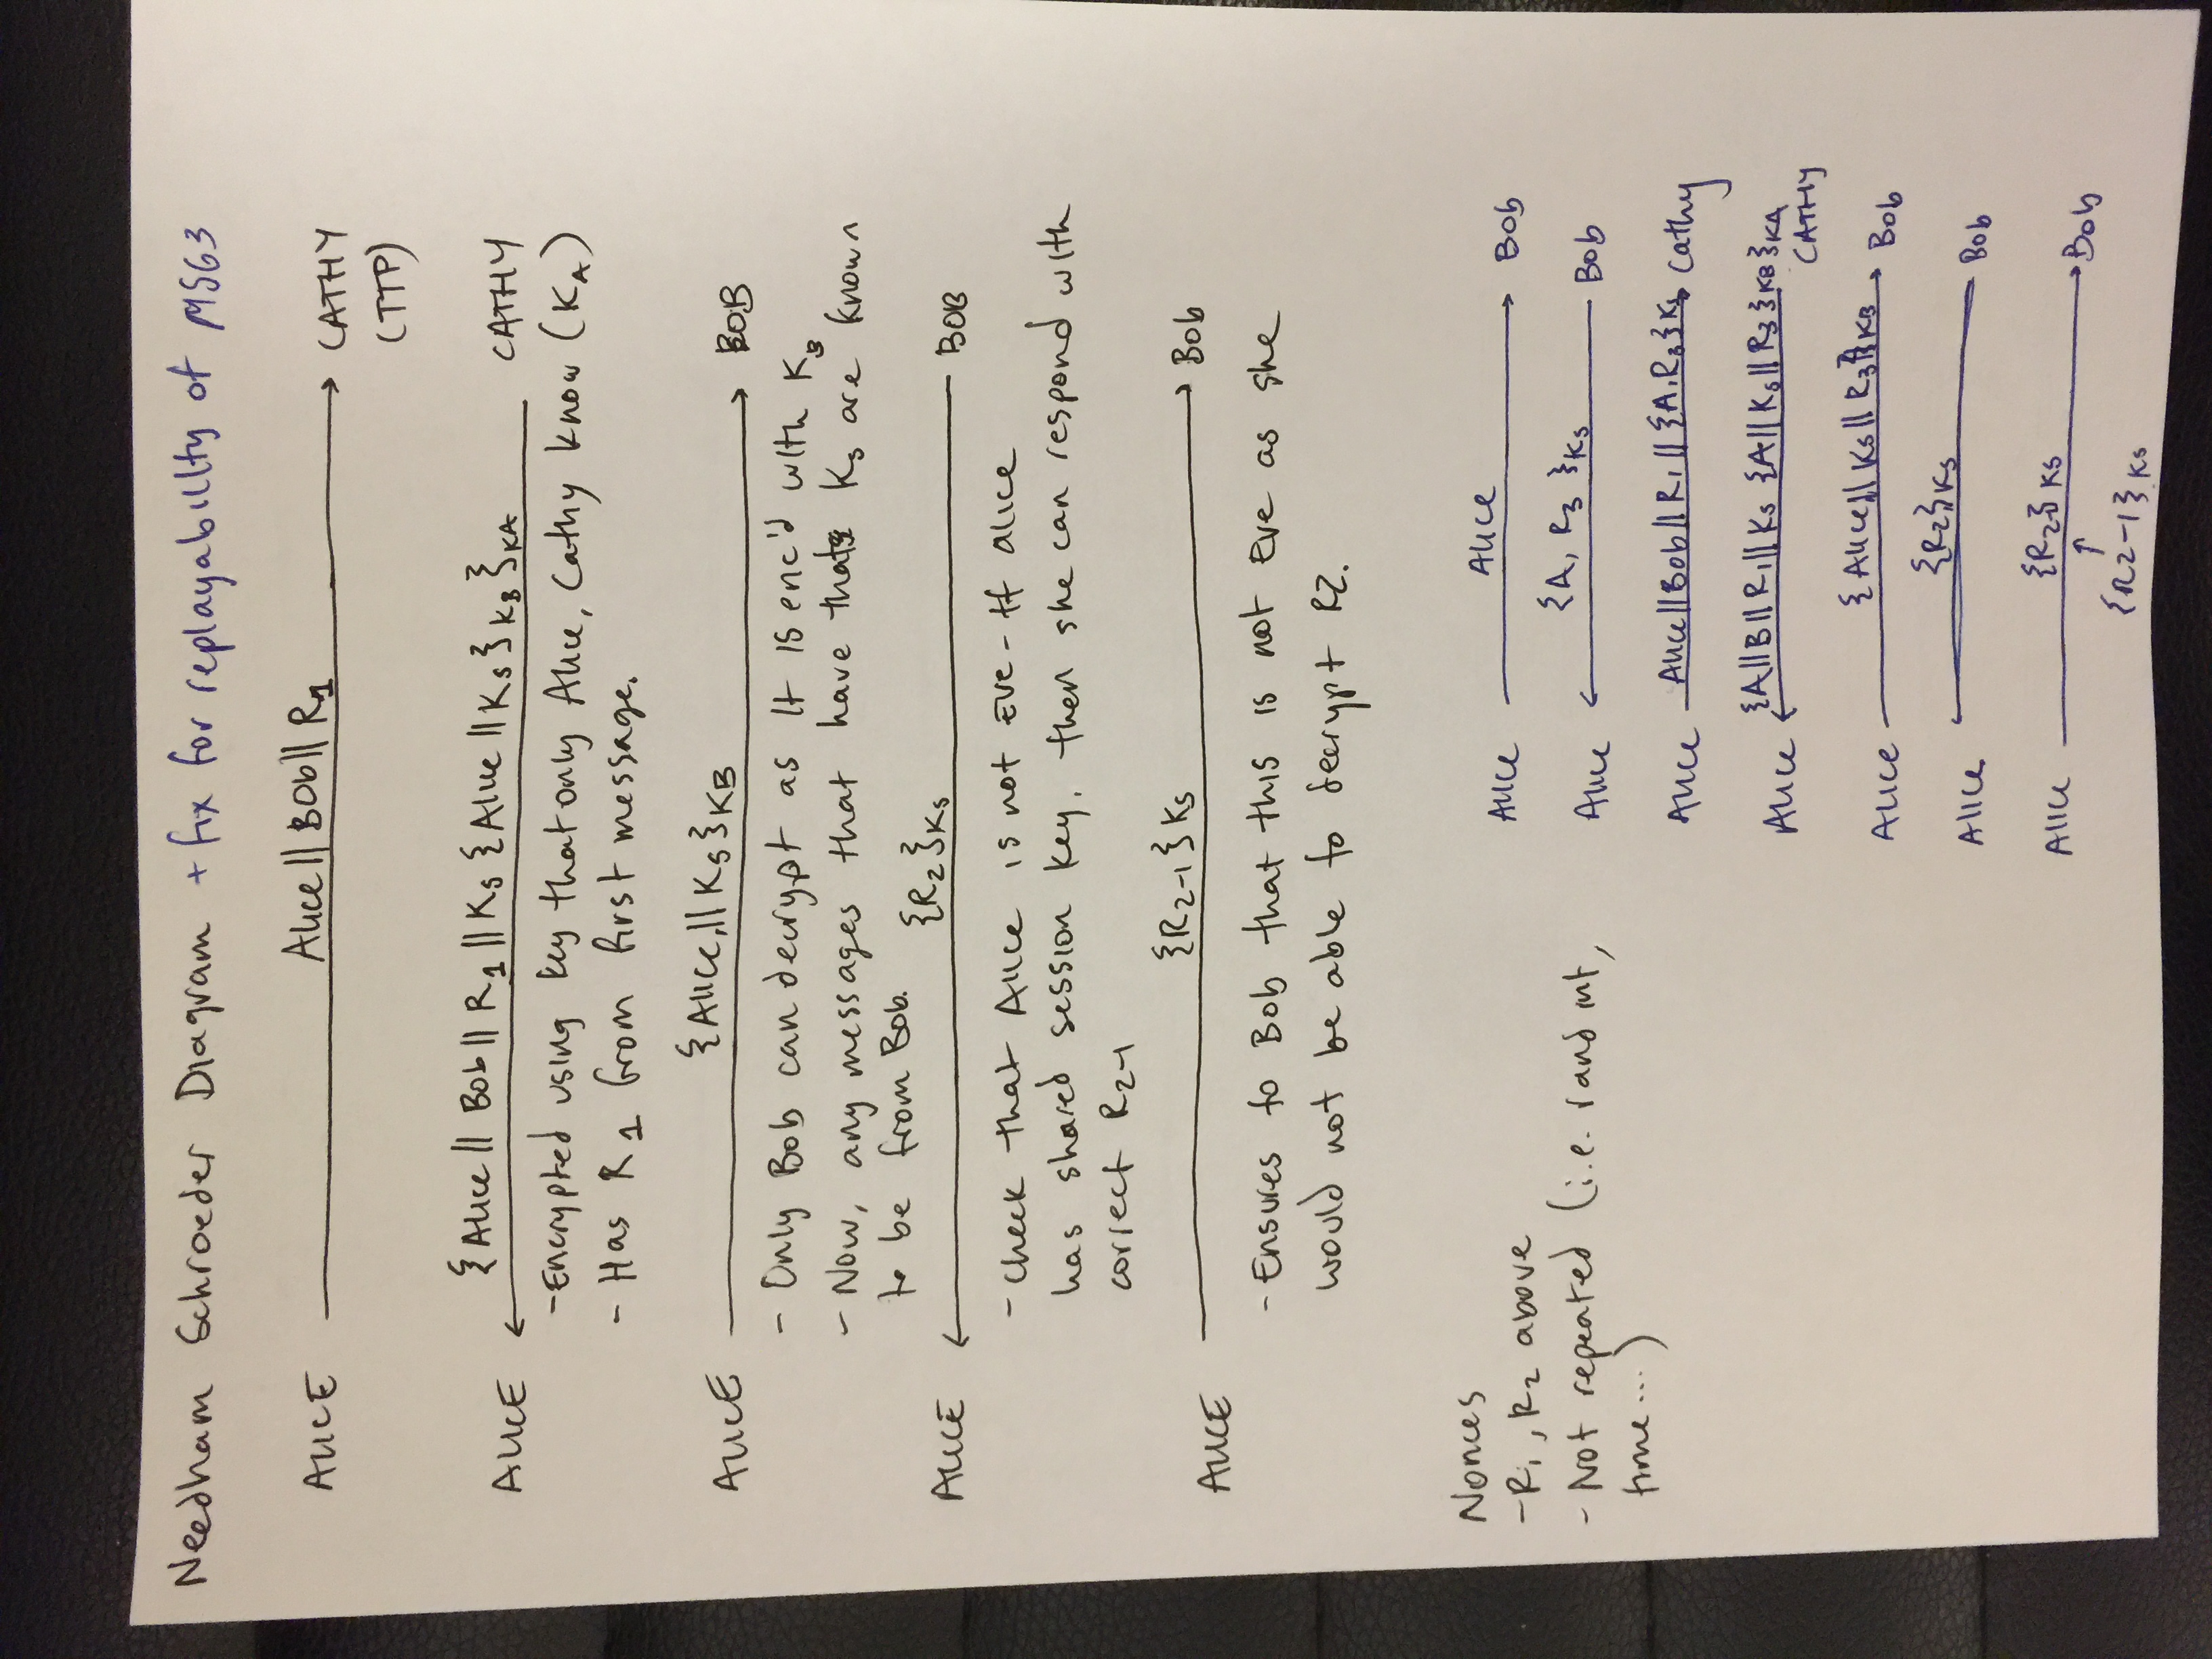 Needham Schroeder Diagram + fix for replayabillity of MSG3
Alice || Bob || R1
ALICE CATHY
(TTP)
{Alice || Bob || R1 || Ks {Alice || Ks}KB}KA
ALICE CATHY
- Encrypted using key that only Alice, Cathy know (KA)
- Has R1 from first message.
{Alice || Ks}KB
ALICE BOB
- Only Bob can decrypt as it is enc'd with KB
- Now, any messages that have that Ks are known
to be from Bob.
{R2}Ks
ALICE BOB
- Check that Alice is not Eve - If alice
has shared session key, then she can respond with
correct R2-1
{R2-1}Ks
ALICE Bob
- Ensures to Bob that this is not Eve as she
would not be able to decrypt R2.
Nonces
- R1, R2 above
- Not repeated (i.e. rand int,
time...)
Alice
Alice Bob
{A, R3}Ks
Alice Bob
Alice || Bob || R1 || {A, R3}Ks
Alice Cathy
{A || B || R1 || Ks {A || Ks || R3}KB}KA
Alice CATHY
{Alice || Ks || R3}KB
Alice Bob
{R2}Ks
Alice Bob
{R2-1}Ks
Alice Bob
↑
{R2-1}Ks